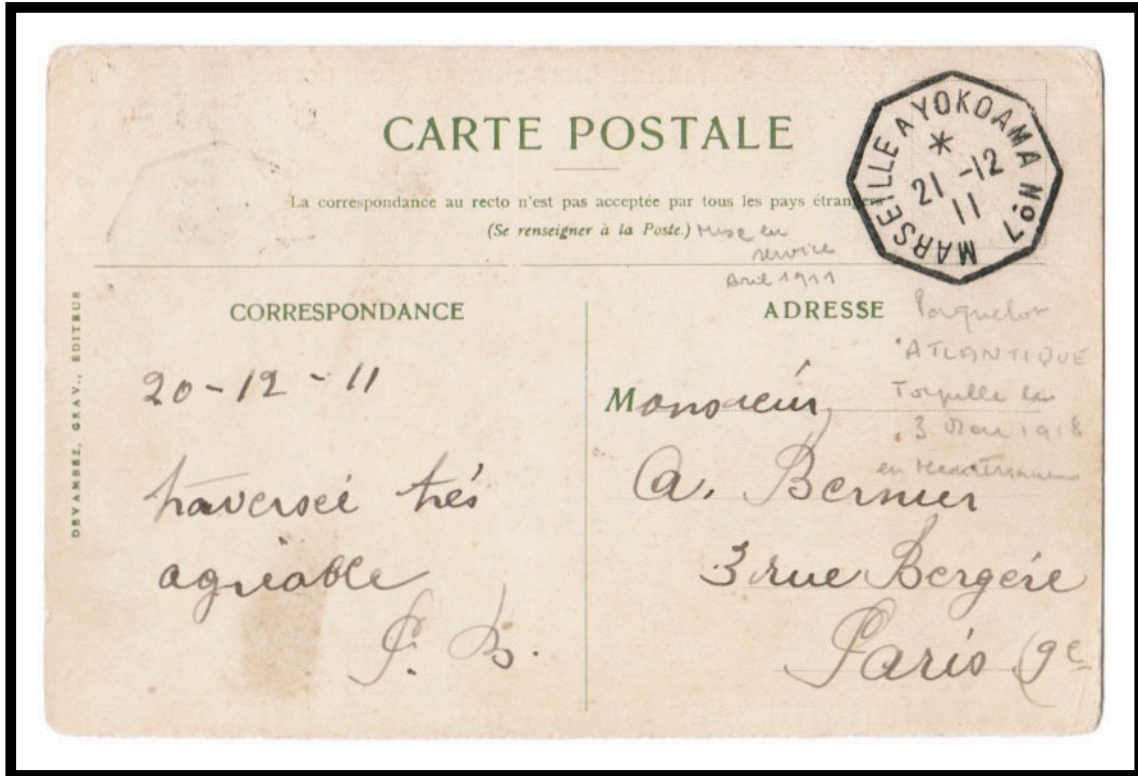 CARTE POSTALE
La correspondance au recto n'est pas acceptée par tous les pays étrangers
(Se renseigner à la Poste.)
MARSEILLE A YOKOAMA No7
*
21 -12
11
Mise en
service
Avril 1911
DEVAMBEZ, GRAV., EDITEUR
CORRESPONDANCE
20-12-11
traverseé trés
agréable
P. B.
ADRESSE
Paquebot
"ATLANTIQUE
Torpille le
3 Mai 1918
en Mediterranee
Monsieur
A. Bernier
3 rue Bergére
Paris 9e